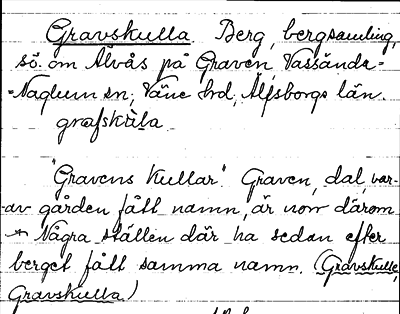 Gravskulla. Berg, bergsamling,
sö. om Älvås på Graven Vassända=
=Naglum sn, Väne hd, Älfsborgs län.
grafskula
"Gravens kullar." Graven, dal, var-
av gården fått namn, är norr därom
Några ställen där ha sedan efter
berget fått samma namn. (Gravskulle,
Gravskulla.)